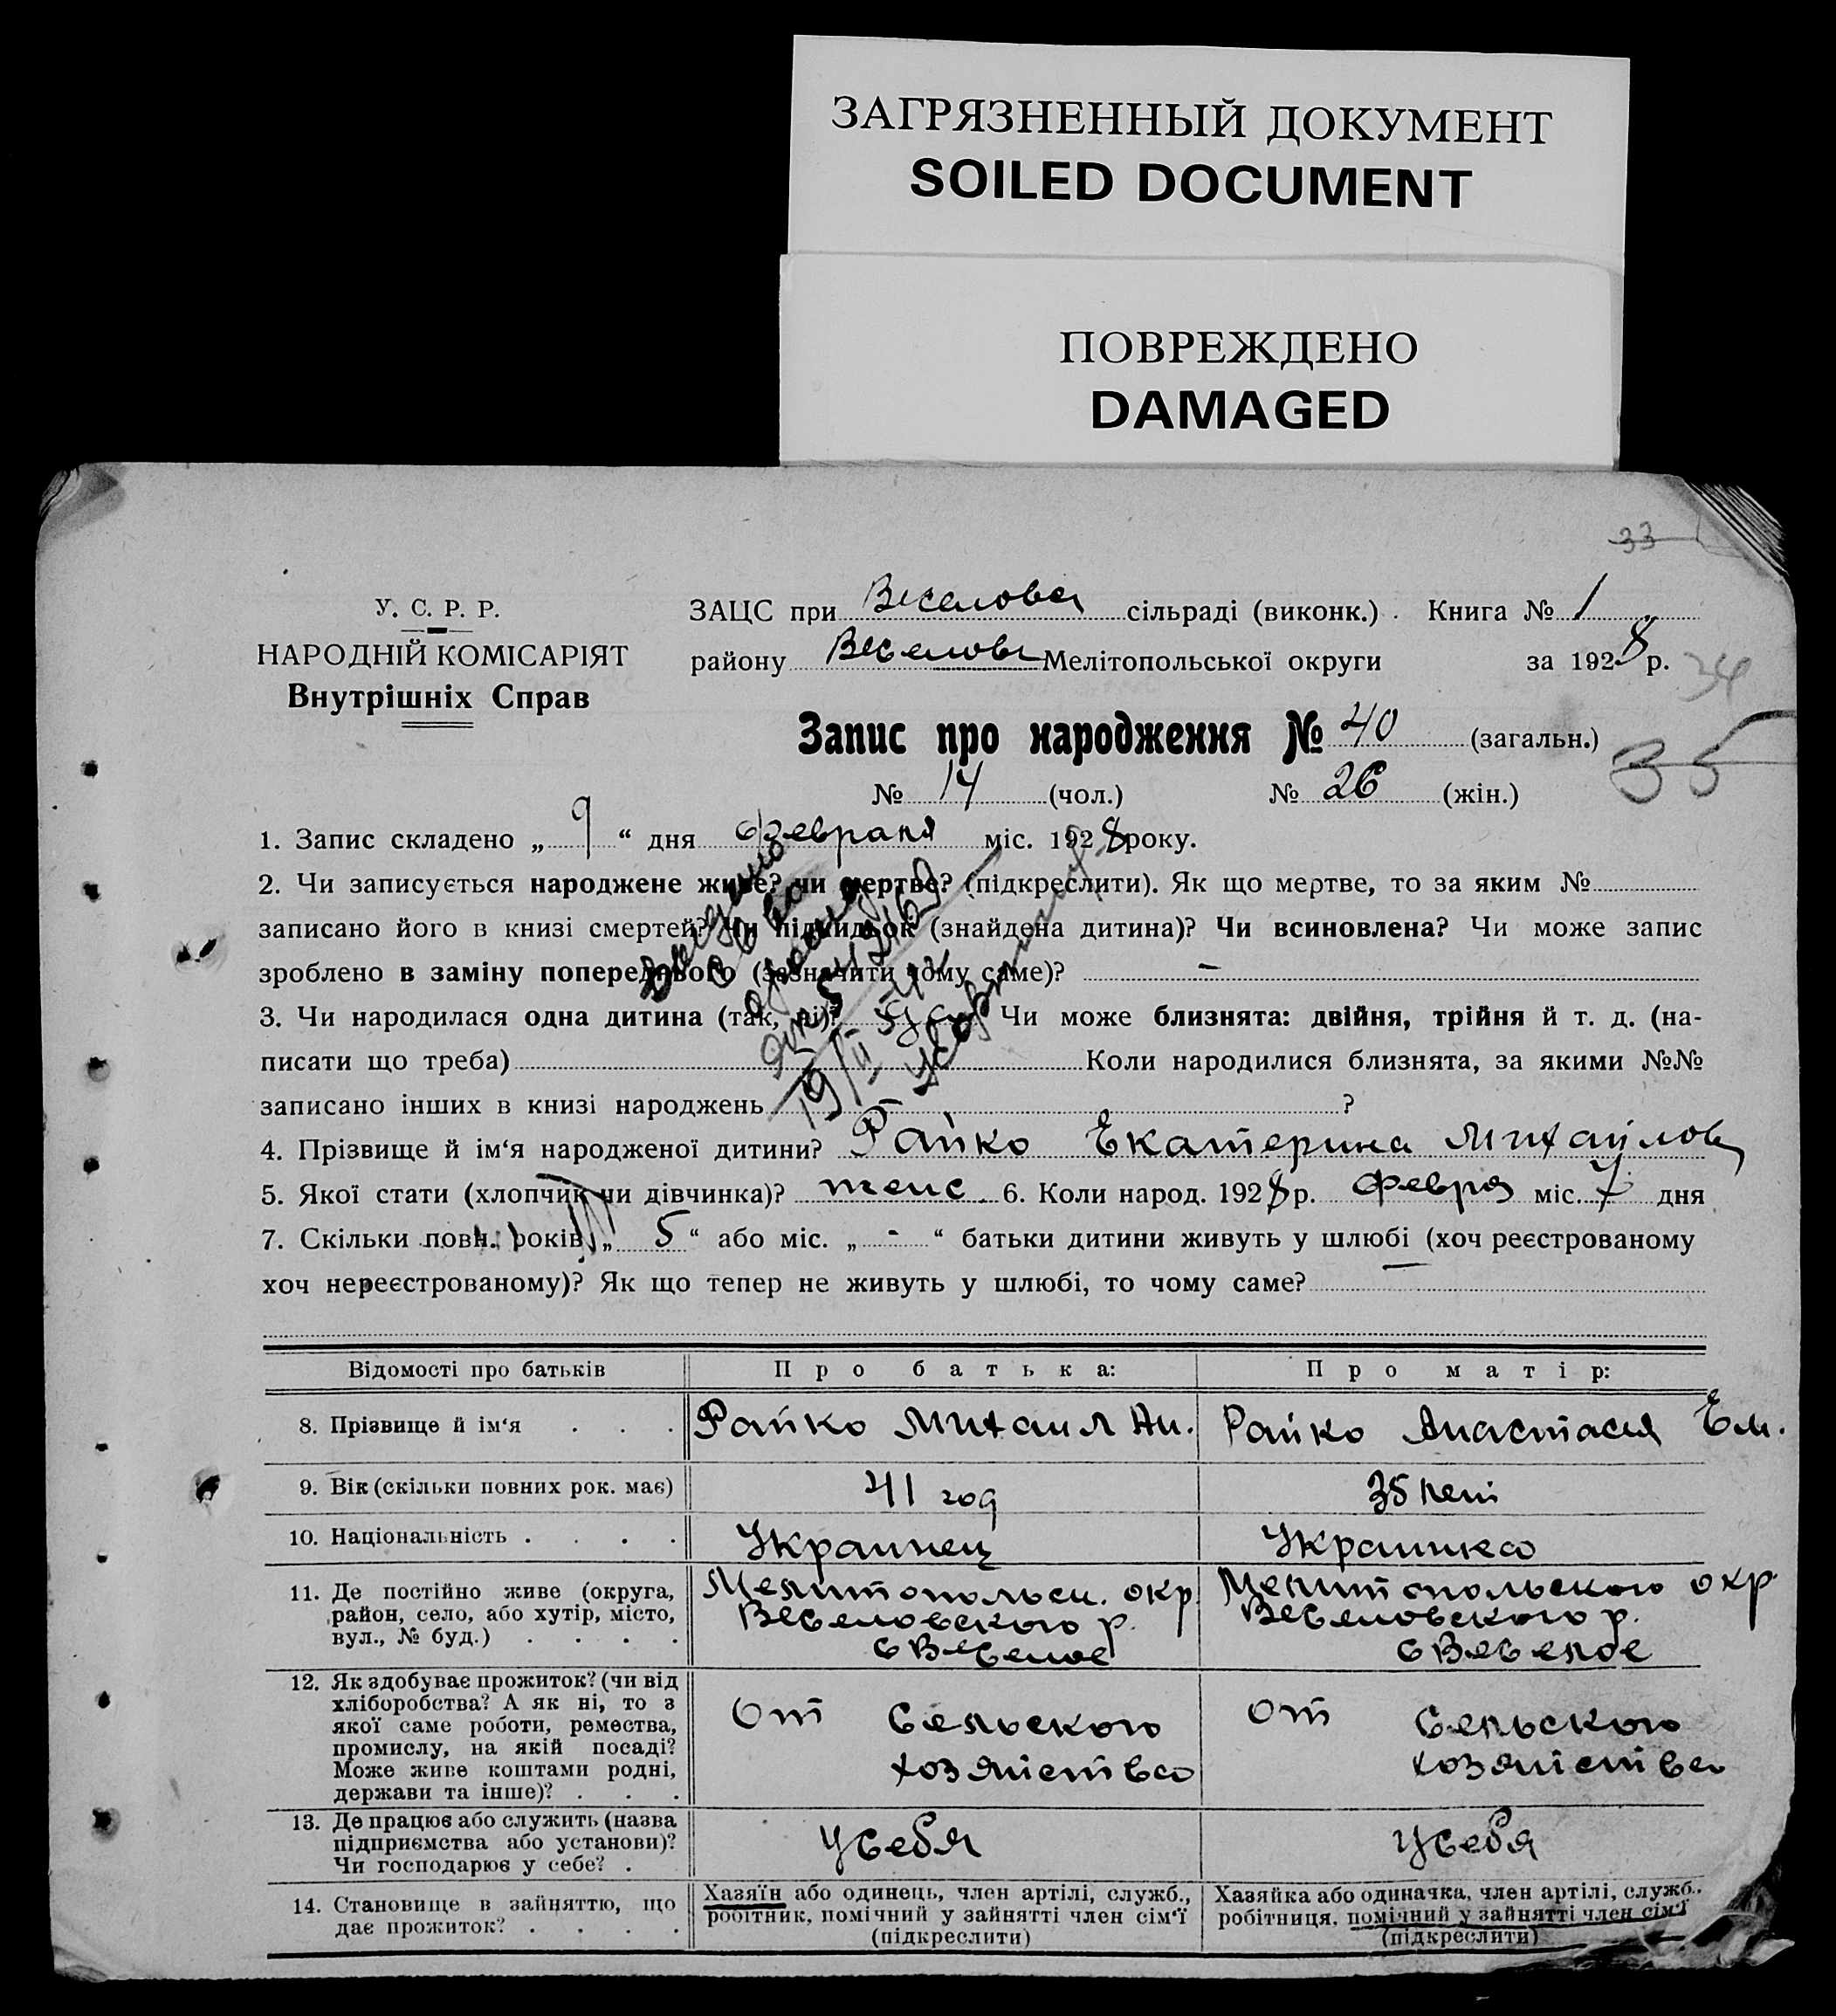 ЗАГРЯЗНЕННЫЙ ДОКУМЕНТ
SOILED DOCUMENT
ПОВРЕЖДЕНО
DAMAGED
33
У. С. Р. Р.
НАРОДНІЙ КОМІСАРІЯТ
Внутрішніх Справ
ЗАЦС при Веселовск сільраді (виконк.). Книга № 1
району Веселовс Мелітопольської округи за 1928 р.
34
Запис про народження № 40 (загальн.)
35
№ 14 (чол.) № 26 (жін.)
1. Запис складено „ 9 “ дня февраля міс. 1928 року.
2. Чи записується народжене живе? чи мертве? (підкреслити). Як що мертве, то за яким №
записано його в книзі смертей? Чи підкидьок (знайдена дитина)? Чи всиновлена? Чи може запис
зроблено в заміну попереднього (зазначити чому саме)? –
3. Чи народилася одна дитина (так, ні)? Чи може близнята: двійня, трійня й т. д. (на-
писати що треба) Коли народилися близнята, за якими №№
записано інших в книзі народжень ?
Выдано
19/II
4. Прізвище й ім‘я народженої дитини? Райко Екатерина Михайлов
5. Якої стати (хлопчик чи дівчинка)? женс. 6. Коли народ. 1928 р. Февра міс. 7 дня
7. Скільки повн. років „ 5 “ або міс. „ - “ батьки дитини живуть у шлюбі (хоч реєстрованому
хоч нереєстрованому)? Як що тепер не живуть у шлюбі, то чому саме? —
Відомості про батьків Про батька: Про матір:
8. Прізвище й ім‘я . . . Райко Михаил Ан. Райко Анастасия Ем.
9. Вік (скільки повних рок. має) 41 год 35 лет
10. Національність . . . . Украинец Украинка
11. Де постійно живе (округа, район, село, або хутір, місто, вул., № буд.) . . . .
Мелитопольск. окр.
Веселовского р.
с Веселое
Мелитопольского окр
Веселовского р.
с Веселое
12. Як здобуває прожиток? (чи від
хліборобства? А як ні, то з
якої саме роботи, ремества,
промислу, на якій посаді?
Може живе коштами родні,
держави та інше)? . . .
От Сельского
хозяйства
От Сельского
хозяйства
13. Де працює або служить (назва
підприємства або установи)?
Чи господарює у себе? .
У себя
У себя
14. Становище в зайняттю, що
дає прожиток? . . . .
Хазяїн або одинець, член артілі, служб.,
робітник, помічний у зайнятті член сім‘ї
(підкреслити)
Хазяйка або одиначка, член артілі, служб.,
робітниця, помічний у зайнятті член сім‘ї
(підкреслити)